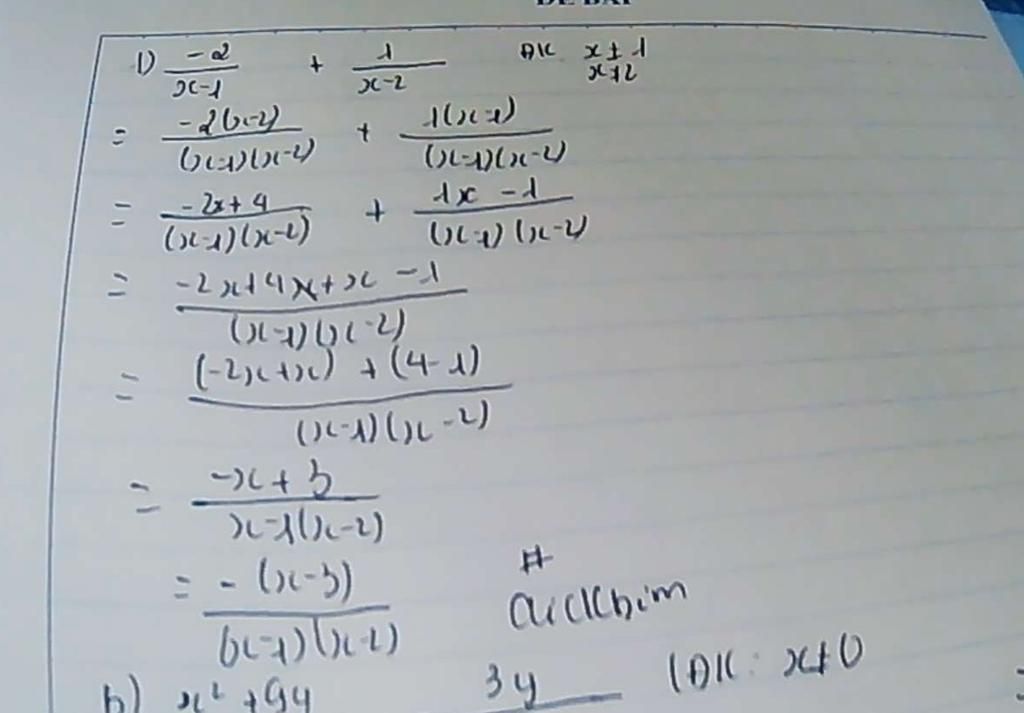 ĐỀ BÀI
1) -2/(x-1) + 1/(x-2) ĐK x≠1
x≠2
= -2(x-2)/(x-1)(x-2) + 1(x-1)/(x-1)(x-2)
= -2x+4/(x-1)(x-2) + 1x-1/(x-1)(x-2)
= -2x+4x+x-1/(x-1)(x-2)
= (-2x+x)+(4-1)/(x-1)(x-2)
= -x+3/x-1(x-2)
= -(x-3)/(x-1)(x-2)
#
b) x²+9y 3y ĐK: x≠0